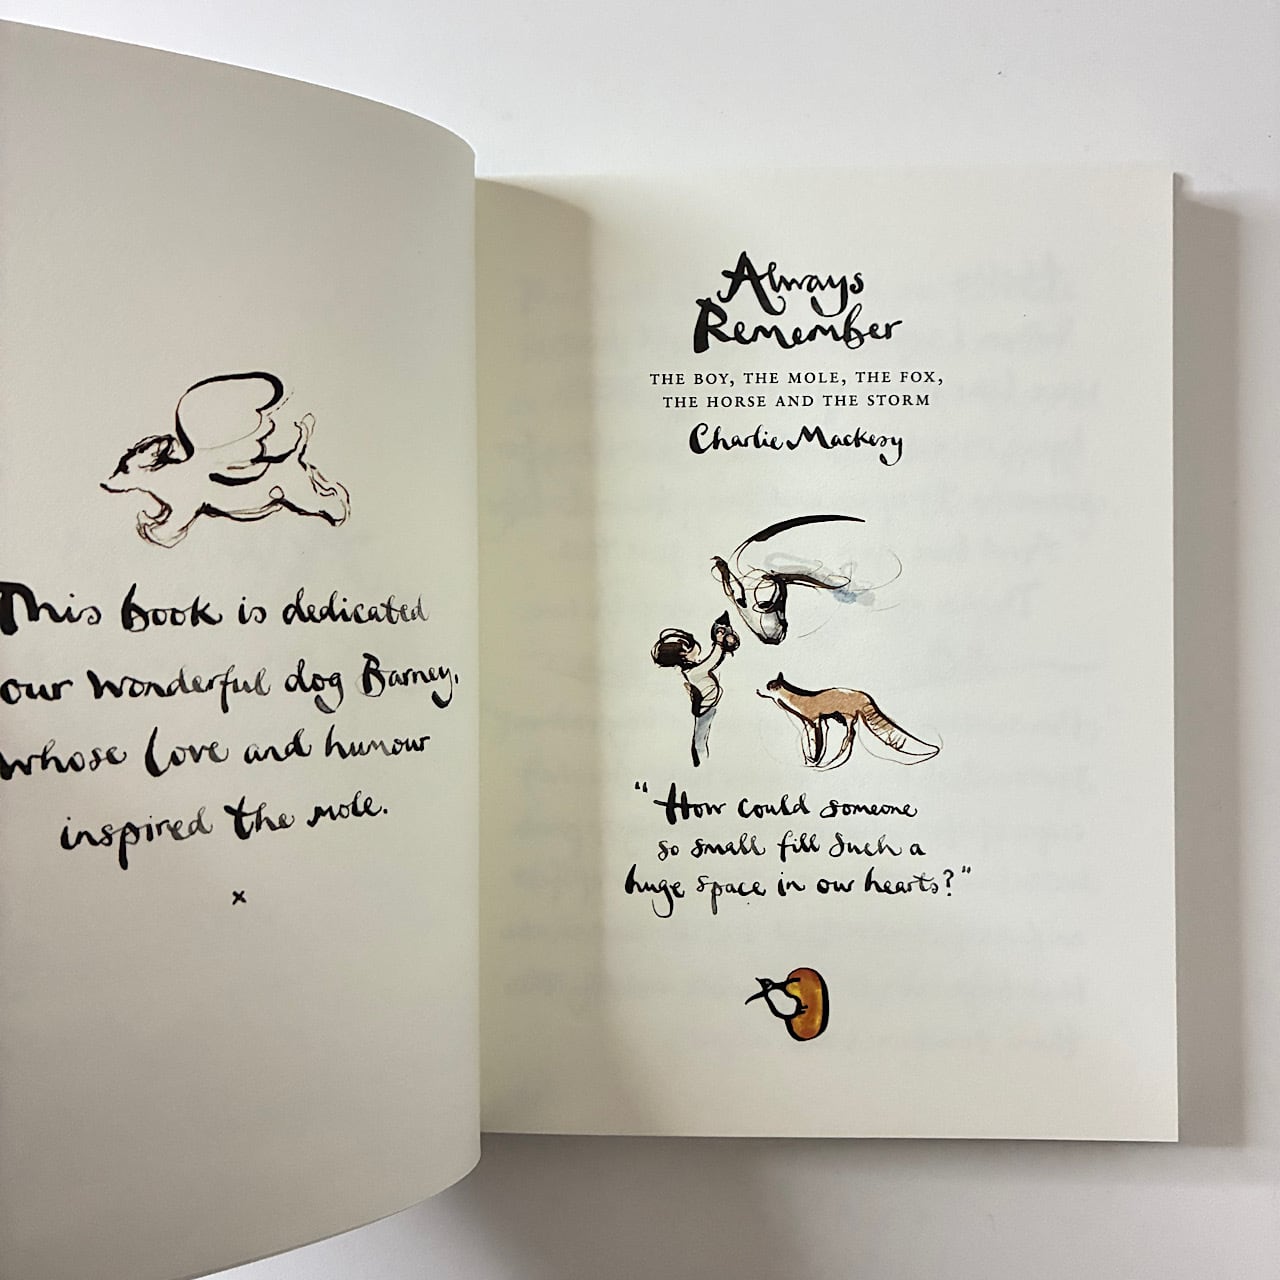 This book is dedicated
our wonderful dog Barney,
whose love and humour
inspired the mole.
x
Always
Remember
THE BOY, THE MOLE, THE FOX,
THE HORSE AND THE STORM
Charlie Mackesy
"How could someone
so small fill such a
huge space in our hearts?"